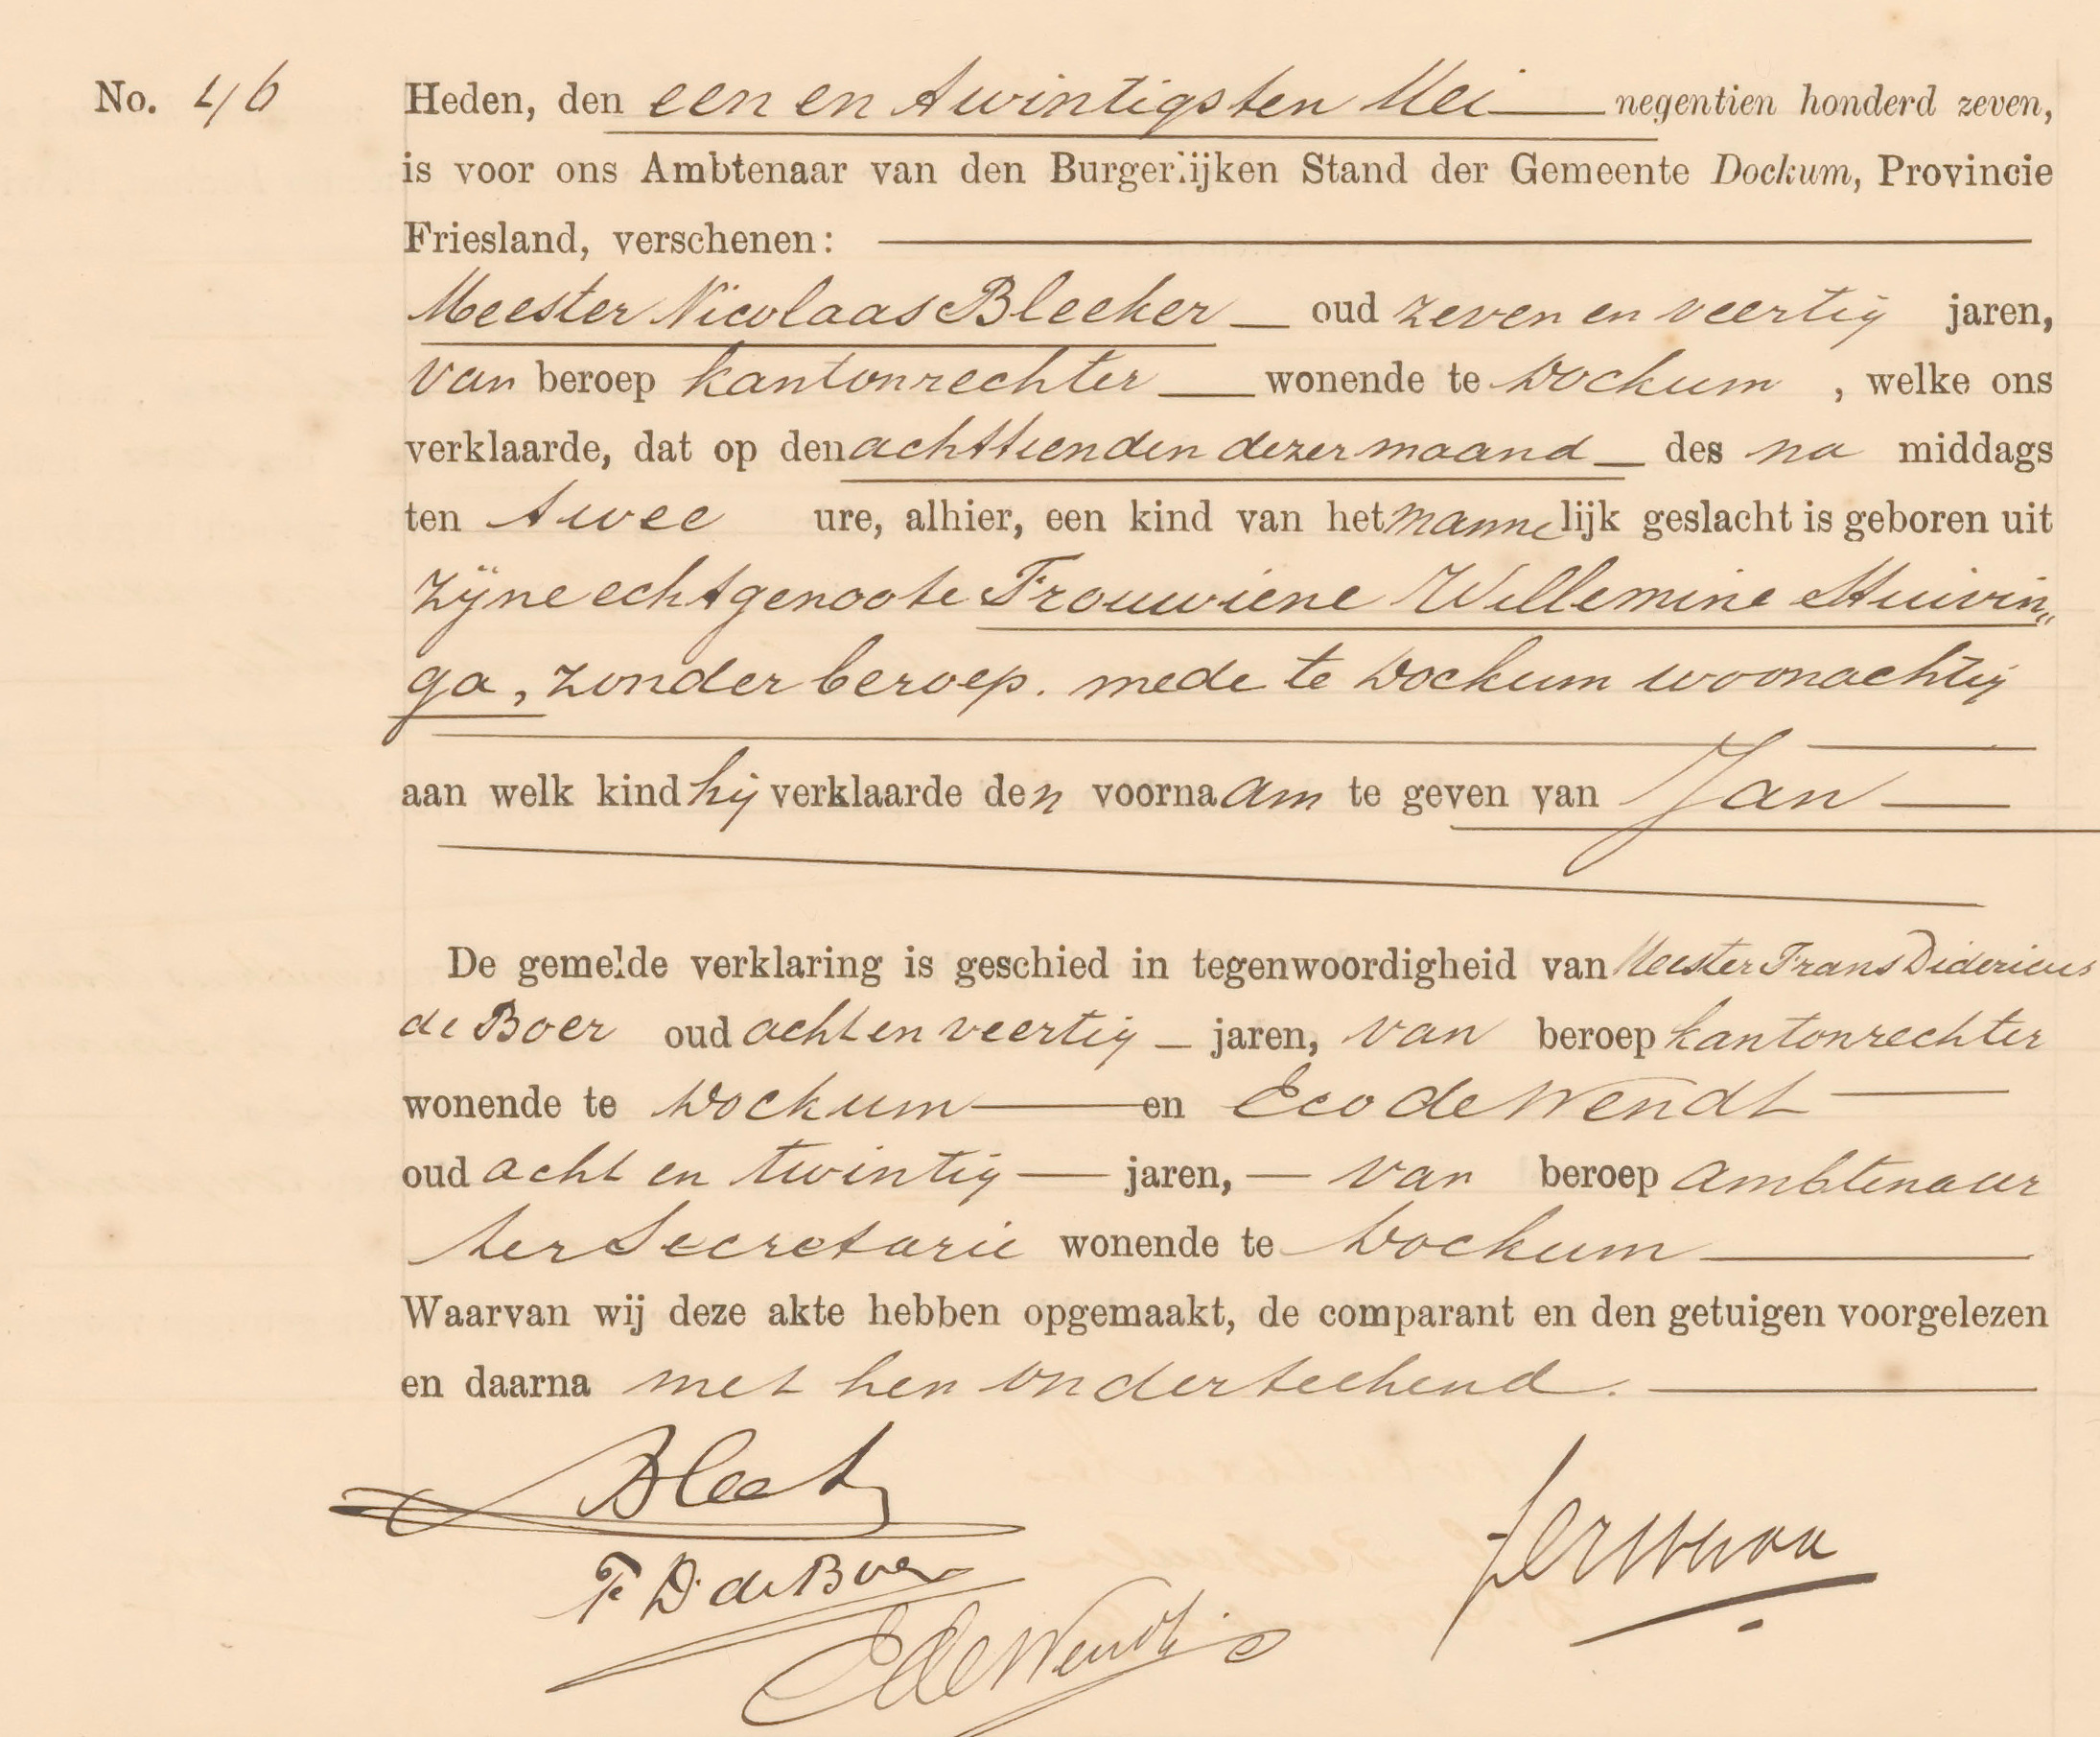 No. 46
Heden, den een en twintigsten Mei negentien honderd zeven,
is voor ons Ambtenaar van den Burgerlijken Stand der Gemeente Dockum, Provincie
Friesland, verschenen:
Meester Nicolaas Bleeker oud zeven en veertig jaren,
van beroep kantonrechter wonende te Dockum , welke ons
verklaarde, dat op den achttienden dezer maand des na middags
ten twee ure, alhier, een kind van het mannelijk geslacht is geboren uit
zijne echtgenoote Frouwiene Willemine Stuivin„
ga, zonder beroep. mede te Dockum woonachtig
aan welk kind hij verklaarde den voornaam te geven van Jan
De gemelde verklaring is geschied in tegenwoordigheid van Meester Frans Didericus
de Boer oud acht en veertig jaren, van beroep kantonrechter
wonende te Dockum en Eco de Wendt
oud acht en twintig jaren, van beroep ambtenaar
ter Secretarie wonende te Dockum
Waarvan wij deze akte hebben opgemaakt, de comparant en den getuigen voorgelezen
en daarna met hen onderteekend.
Bleeker
F D de Boer
E de Wendt